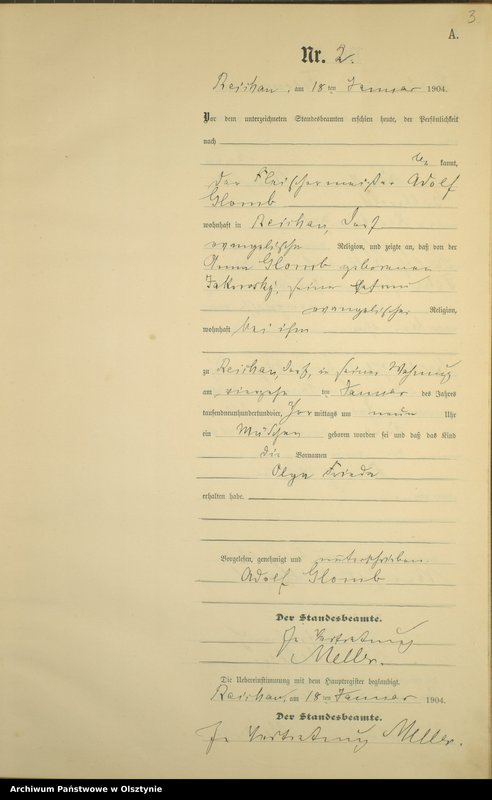 3
A.
Nr. 2.
Reichau, am 18 ten Januar 1904.
Vor dem unterzeichneten Standesbeamten erschien heute, der Persönlichkeit
nach
be kannt,
der Fleischermeister Adolf
Glomb
wohnhaft in Reichau, Dorf
evangelische Religion, und zeigte an, daß von der
Anna Glomb geborenen
seiner Ehefrau
evangelischer Religion,
wohnhaft bei ihm
zu Reichau, Dorf, in seiner Wohnung
am vierzehn ten Januar des Jahres
tausendneunhundertundvier, Vor mittags um neun Uhr
ein Mädchen geboren worden sei und daß das Kind
die Vornamen
Olga Frieda
erhalten habe.
Vorgelesen, genehmigt und unterschrieben.
Adolf Glomb
Der Standesbeamte.
In Vertretung
Meller.
Die Uebereinstimmung mit dem Hauptregister beglaubigt.
Reichau, am 18 ten Januar 1904.
Der Standesbeamte.
In Vertretung Meller.
Archiwum Państwowe w Olsztynie